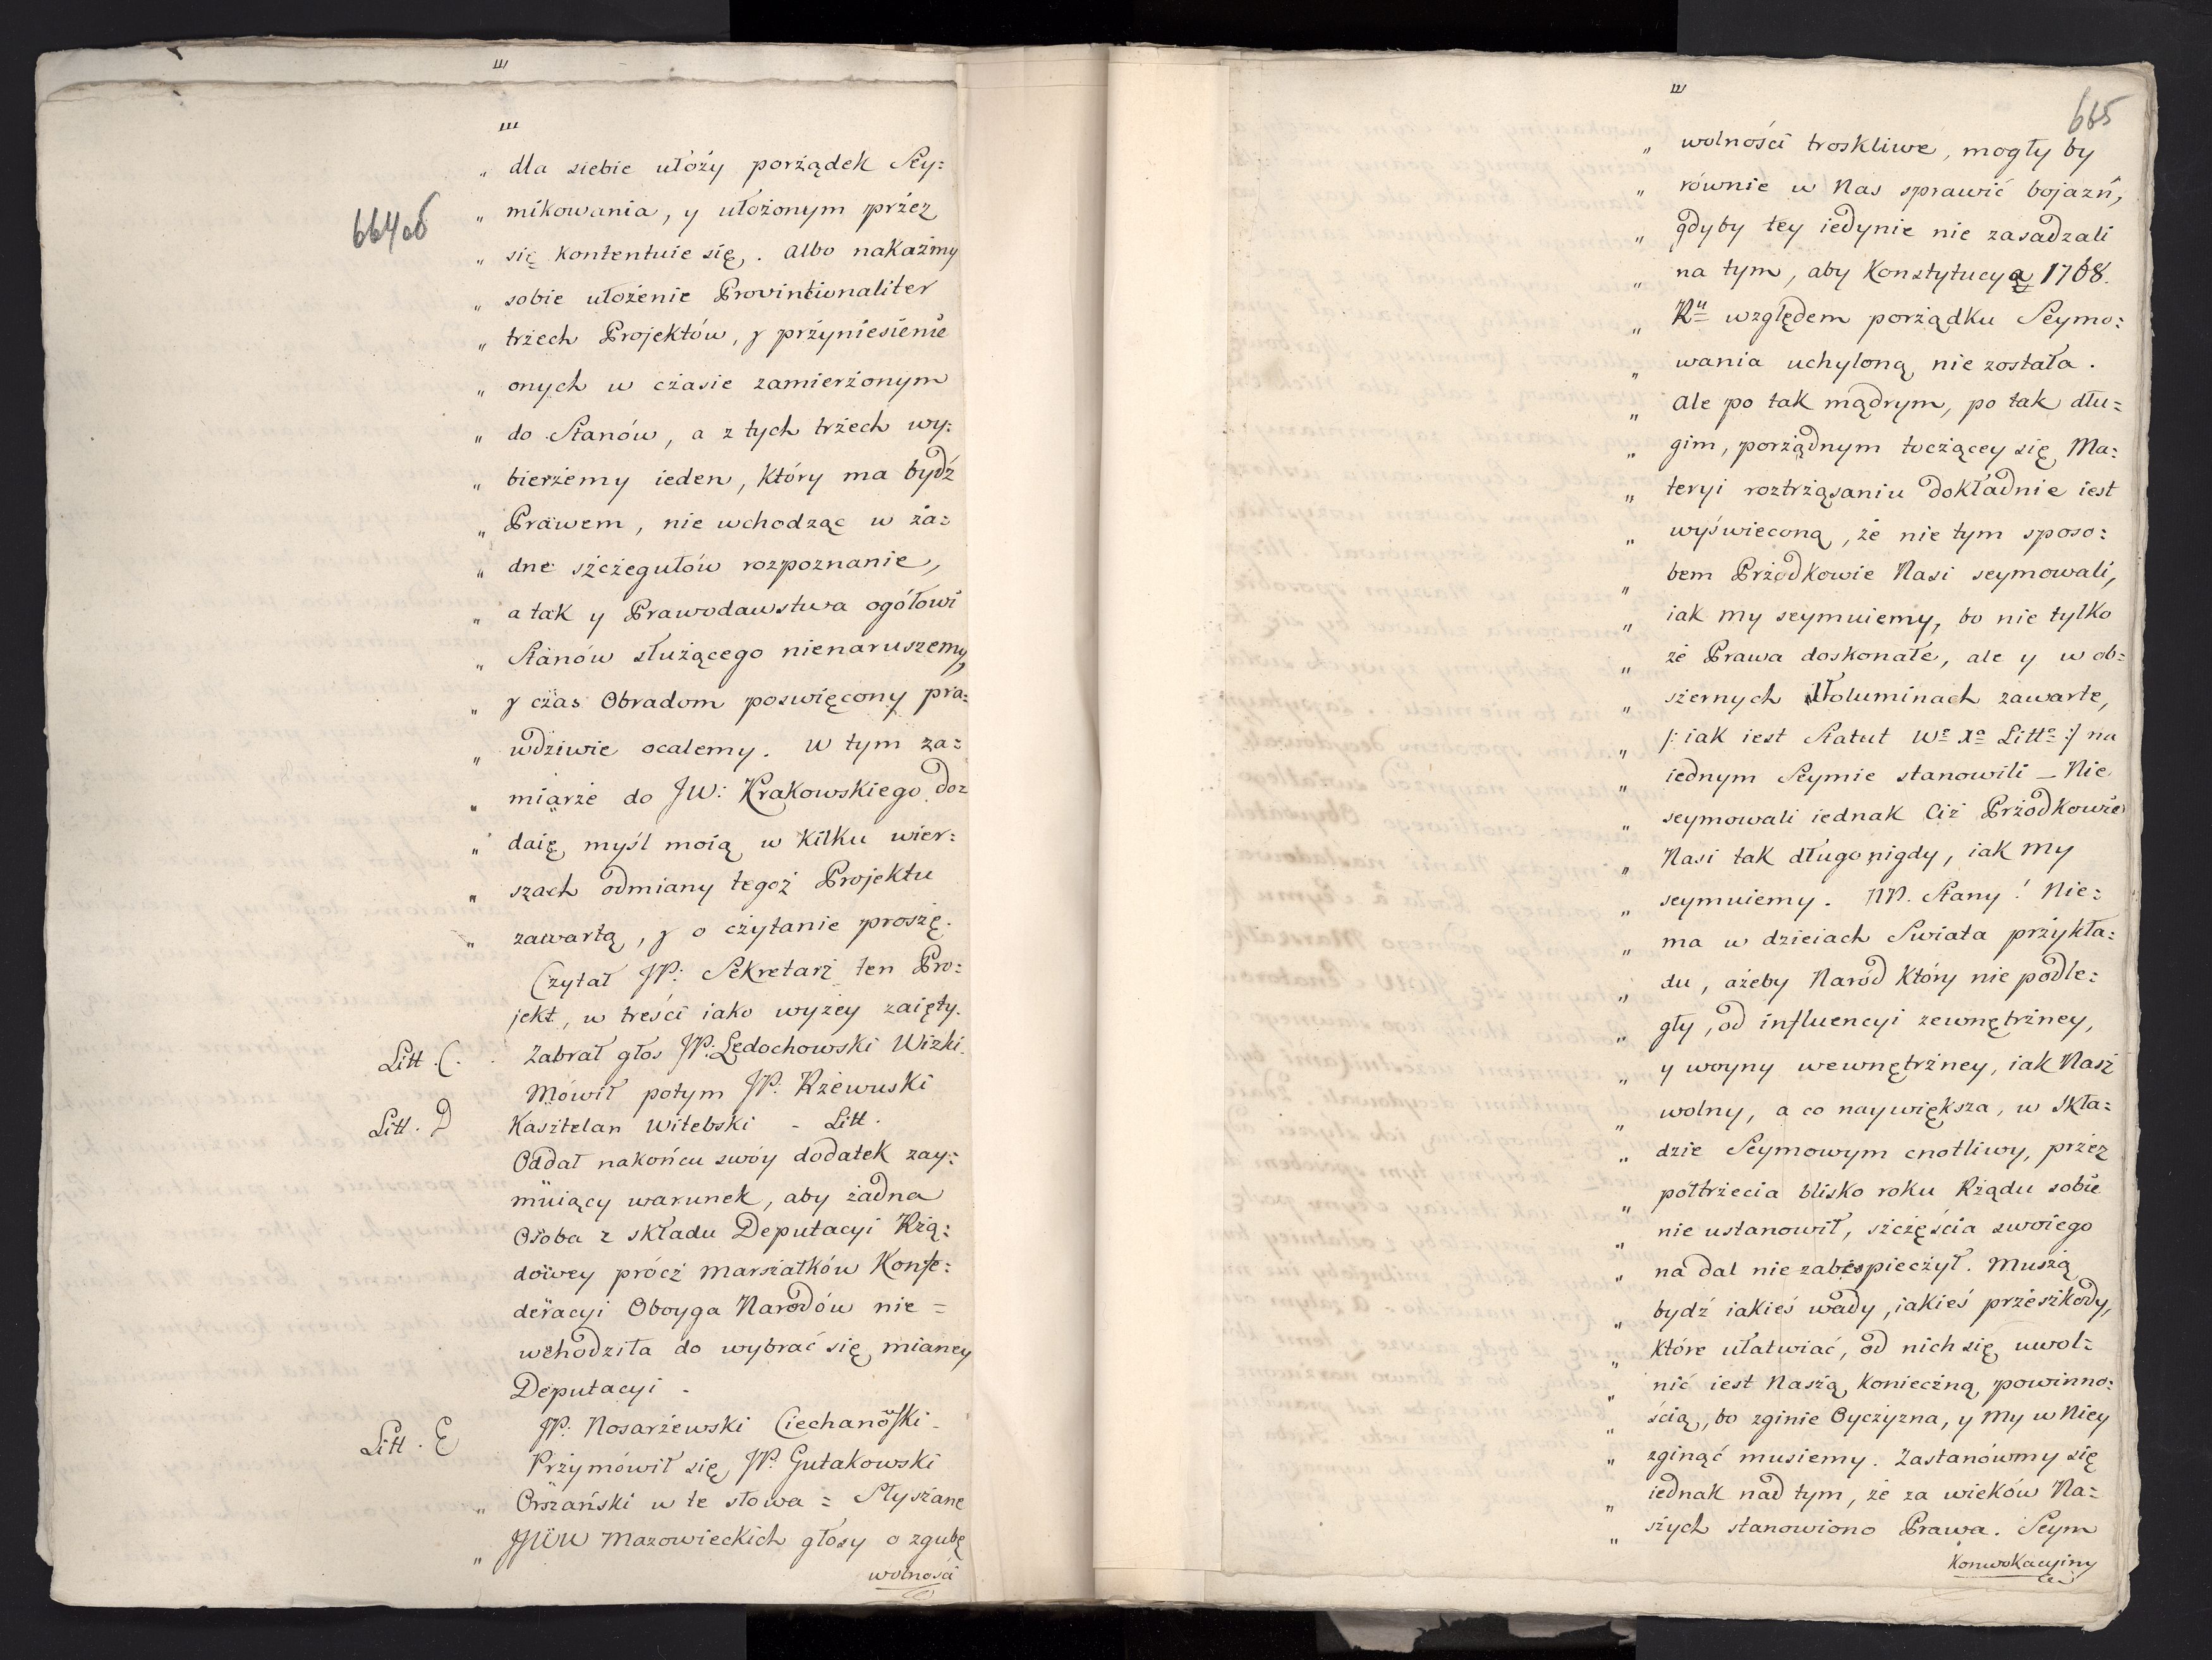 "
"
664 об
„ dla siebie ułoży porżądek Sey:
„ mikowania, y ułożonym przez
„ się kontentuie się. Albo nakażmy
„ sobie ułożenie Provintionaliter
„ trżech Projektów, y prżyniesienie
„ onych w cżasie zamierżonym
„ do Stanów, a z tych trżech wy:
„ bierżemy ieden, który ma bydź
„ Prawem, nie wchodząc w ża:
„ dne szcżegułów rozpoznanie,
„ a tak y Prawodawstwa ogółowi
„ Stanów służącego nienaruszemy,
„ y cżas Obradom poswięcony pra:
„ wdziwie ocalemy. W tym za:
„ miarże do JW: Krakowskiego do:
„ daię myśl moią w kilku wier:
„ szach odmiany tegoż Projektu
„ zawartą, y o cżytanie proszę.
Czytał JP: Sekretarż ten Pro:
jekt, w treści iako wyżey zaięty.
Litt. C. Zabrał głos JP: Ledochowski Wizki.
Mówił potym JP: Rżewuski
Litt. D Kasztelan Witebski - Litt.
Oddał nakońcu swóy dodatek zay:
muiący warunek, aby żadna
Osoba z składu Deputacyi Rżą:
dowey prócż Marszałków Konfe:
deracyi Oboyga Narodów nie =
wchodziła do wybrać się mianey
Deputacyi -
Litt. E JP: Nosarżewski Ciechanowski -
Prżymówił się JP: Gutakowski
„ Orszański w te słowa = Słyszane
„ JWW Mazowieckich głosy o zgubę
wolności
"
665
„ wolności troskliwe, mogły by
„ równie w Nas sprawić bojazń,
„ gdyby tey iedynie nie zasadzali
„ na tym, aby Konstytucyą 1768.
„ Ru względem porżądku Seymo:
„ wania uchyloną nie została.
„ Ale po tak mądrym, po tak dłu:
„ gim, porżądnym tocżącey się Ma:
„ teryi roztrżąsaniu dokładnie iest
„ wyświeconą, że nie tym sposo:
„ bem Prżodkowie Nasi seymowali,
„ iak my seymuiemy, bo nie tylko
„ że Prawa doskonałe, ale y w ob:
„ szernych Woluminach zawarte,
„ /: iak iest Statut Wo Xo Litto :/ na
„ iednym Seymie stanowili _ Nie
„ seymowali iednak Ciż Prżodkowie
„ Nasi tak długo nigdy, iak My
„ seymuiemy. NN. Stany! Nie:
„ ma w dzieiach Swiata prżykła:
„ du, ażeby Naród który nie podle:
„ gły, od influencyi zewnętrżney,
„ y woyny wewnętrżney, iak Nasz
„ wolny, a co naywiększa, w skła:
„ dzie Seymowym cnotliwy, przez
„ półtrżecia blisko roku Rżądu sobie
„ nie ustanowił, szcżęścia swoiego
„ na dal nie zabespiecżył. Muszą
„ bydź iakieś wady, iakieś prżeszkody,
„ które ułatwiać, od nich się uwol:
„ nić iest Naszą koniecżną powinno:
„ ścią, bo zginie Oyczyzna, y My w Niey
„ zginąć musiemy. Zastanówmy się
„ iednak nad tym, że za wieków Na:
„ szych stanowiono Prawa. Seym
Konwokacyiny